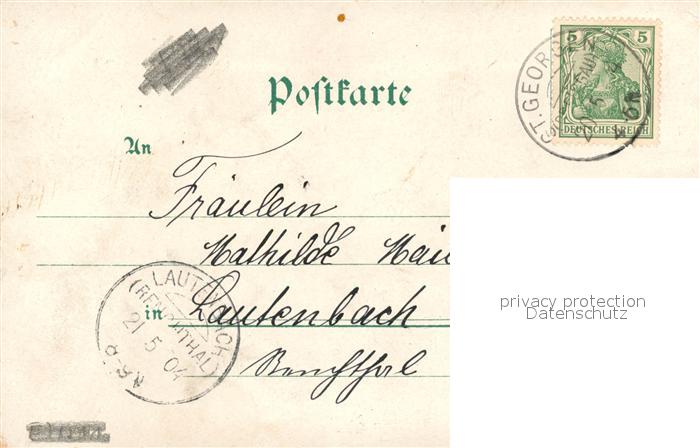 5 5
DEUTSCHES REICH
ST. GEORGEN
20 5
Postkarte
An
Fräulein
Mathilde Mai
in Lautenbach
Renchthal
LAUTENBACH
(RENCHTHAL)
21 5 04
8-9 N
privacy protection
Datenschutz